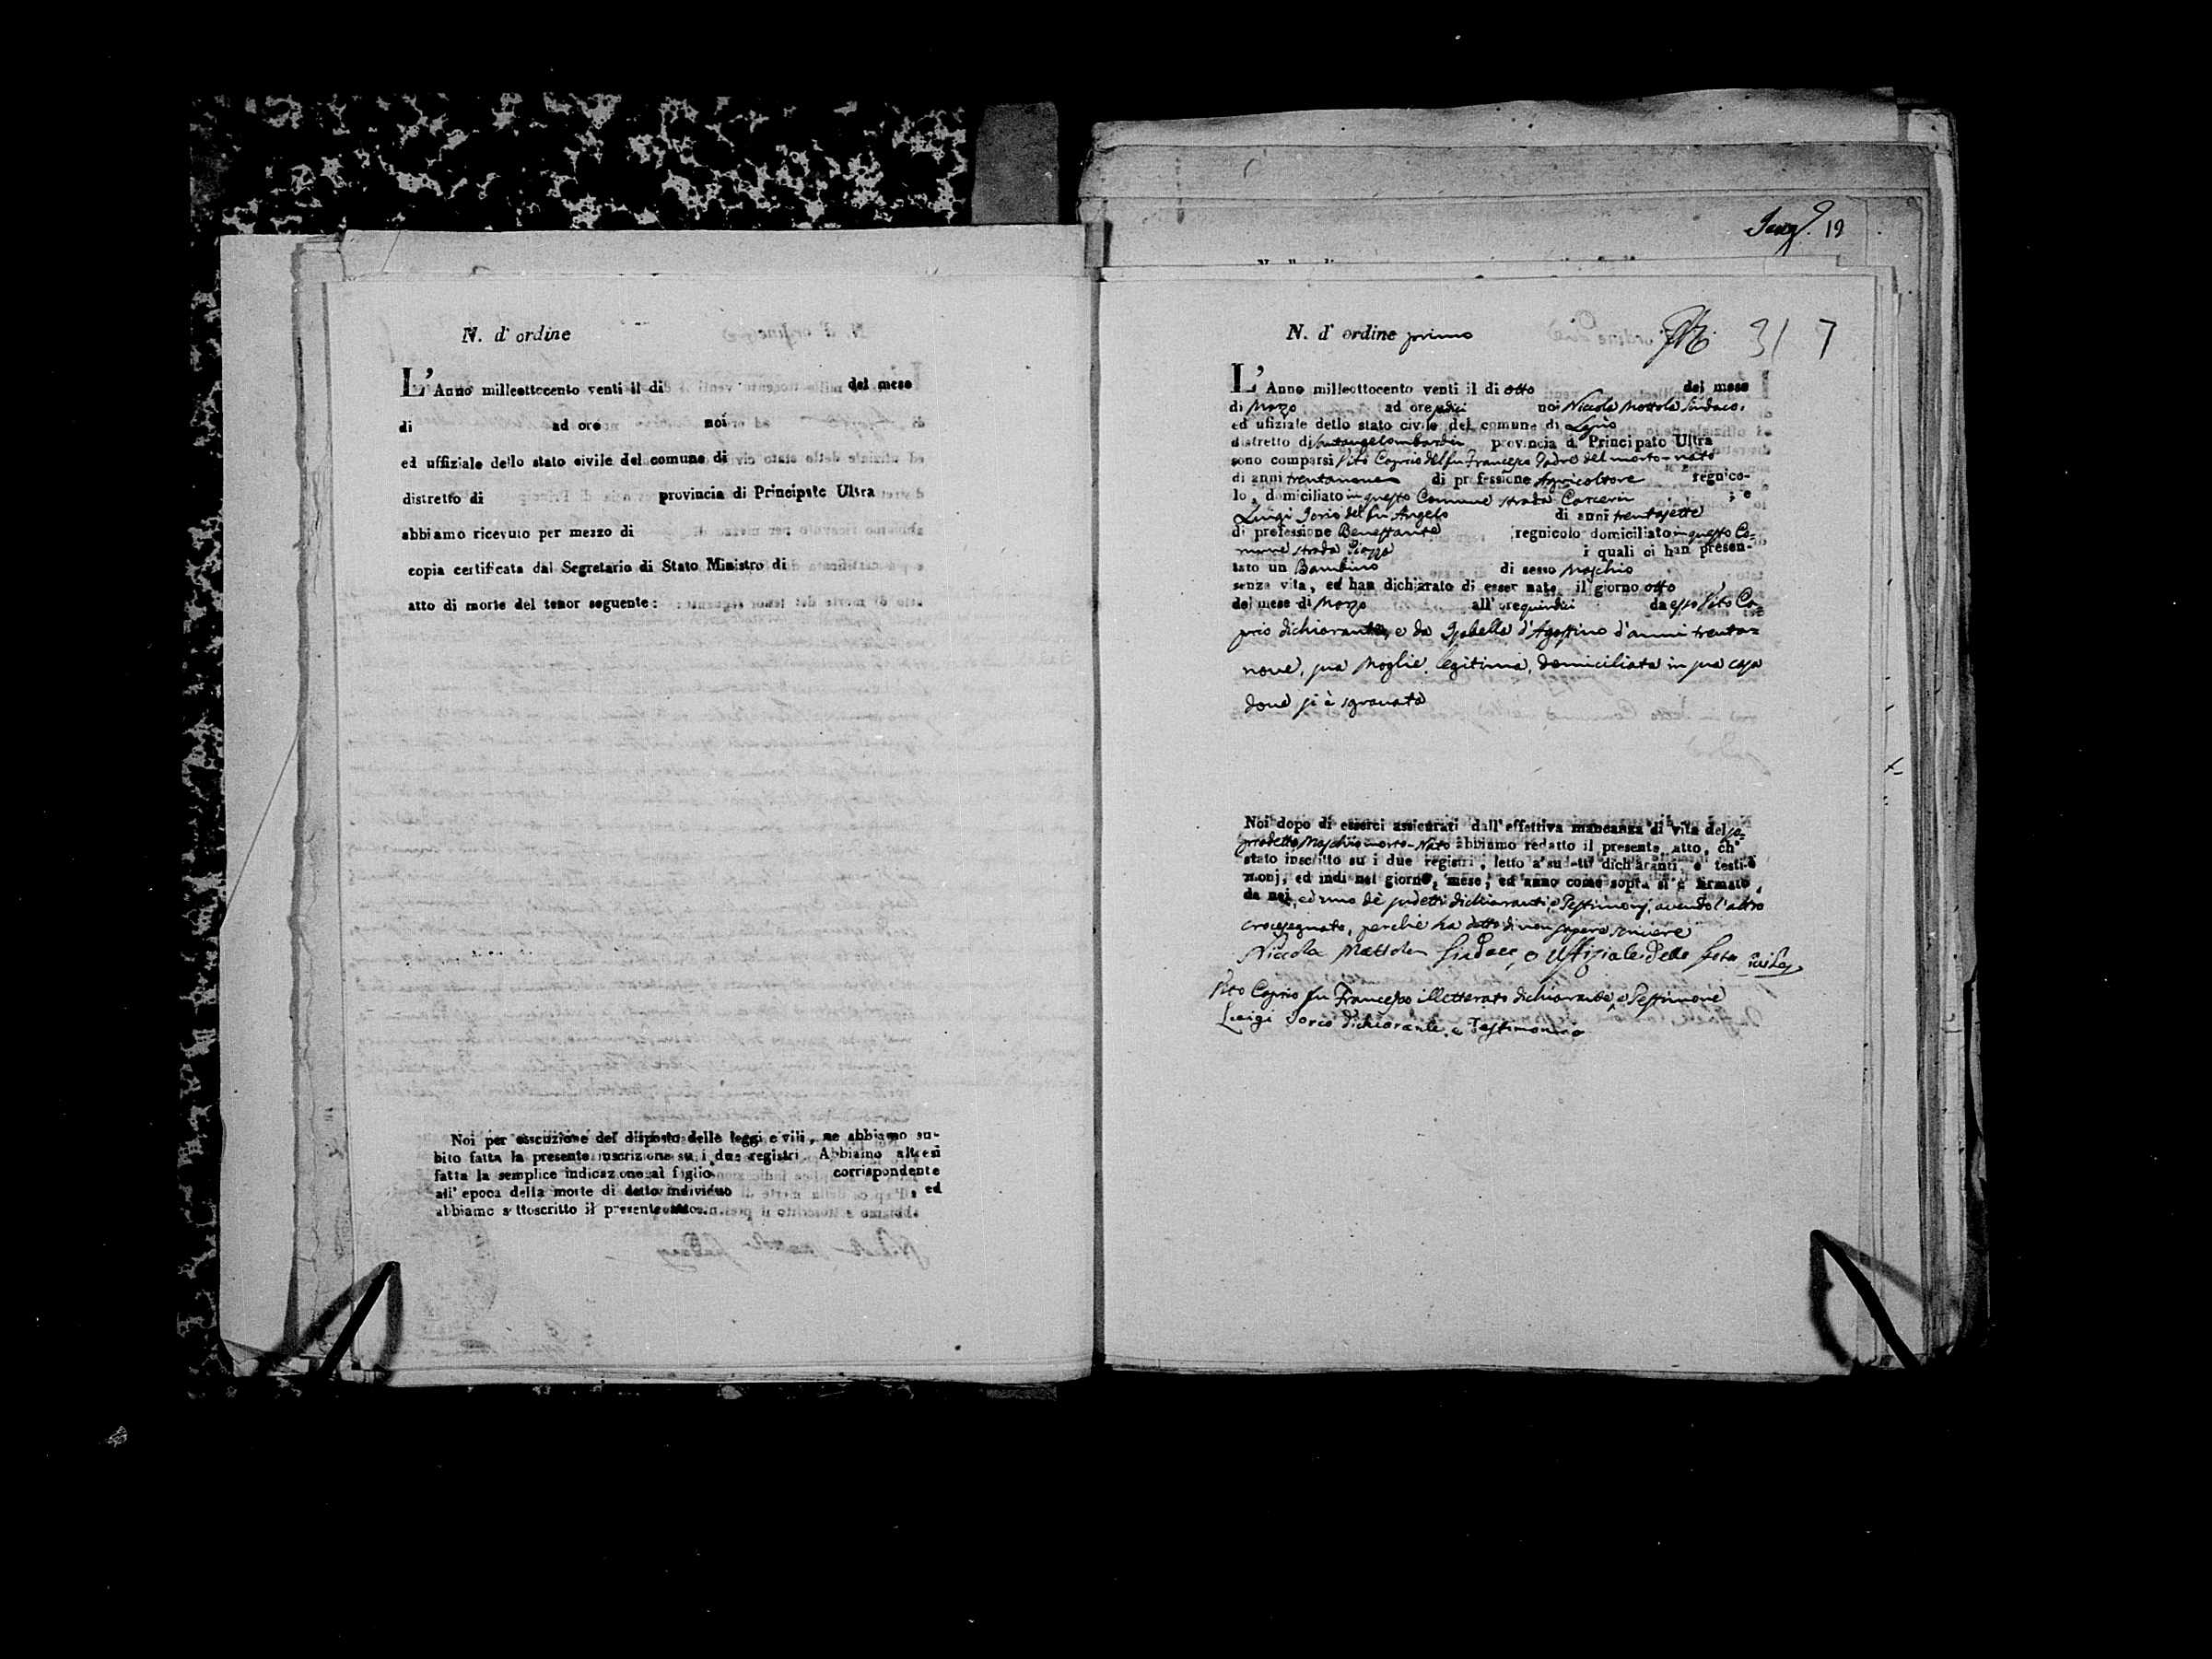 N. d' ordine
L'Anno milleottocento venti il di del mese
di ad ore noi
ed uffiziale dello stato civile del comune di
distretto di provincia di Principato Ultra
abbiamo ricevuto per mezzo di
copia certificata dal Segretario di Stato Ministro di
atto di morte del tenor seguente:
Noi per esecuzione del disposto delle leggi civili, ne abbiamo su-
bito fatta la presente inscrizione su i due registri. Abbiamo altresi
fatta la semplice indicazione al figlio corrispondente
all' epoca della morte di detto individuo , ed
abbiamo sottoscritto il presente atto.
19
N. d' ordine primo
31 7
L'Anno milleottocento venti il di otto del mese
di Marzo ad ore noi Niccola Mottola Sindaco,
ed ufiziale dello stato civile del comune di
distretto di provincia di Principato Ultra
sono comparsi Vito Caprio del fu Francesco Padre del morto-nato
di anni trentanove di professione Agricoltore regnico-
lo, domiciliato in questo Comune strada Carceri ; e
Luigi Iorio del fu Angelo di anni trentasette
di professione Benestante regnicolo domiciliato in questo Co=
mune strada Piazza i quali ci han presen-
tato un Bambino di sesso Maschio
senza vita, ed han dichiarato di esser nato il giorno otto
del mese di Marzo all' ore quindici da esso Vito Ca=
prio dichiarante, e da Isabella d'Agostino d'anni trenta=
nove, sua Moglie legitima, domiciliata in sua casa
dove si è sgravata
Noi dopo di esserci assicurati dall'effettiva mancanza di vita del so=
pradetto Maschio morto-Nato abbiamo redatto il presente atto, ch'è
stato inscritto su i due registri, letto a' sudetti dichiaranti e testi-
monj, ed indi nel giorno, mese, ed anno come sopra si è firmato,
da noi, ed uno dè sudetti dichiaranti, e Testimonj, avendo l'altro
crocesegnato, perchè ha detto di non sapere scrivere
Niccola Mottola Sindaco, e Uffiziale dello Stato Civile
Vito Caprio fu Francesco illetterato dichiarante, e Testimone
Luigi Iorio dichiarante, e Testimonio